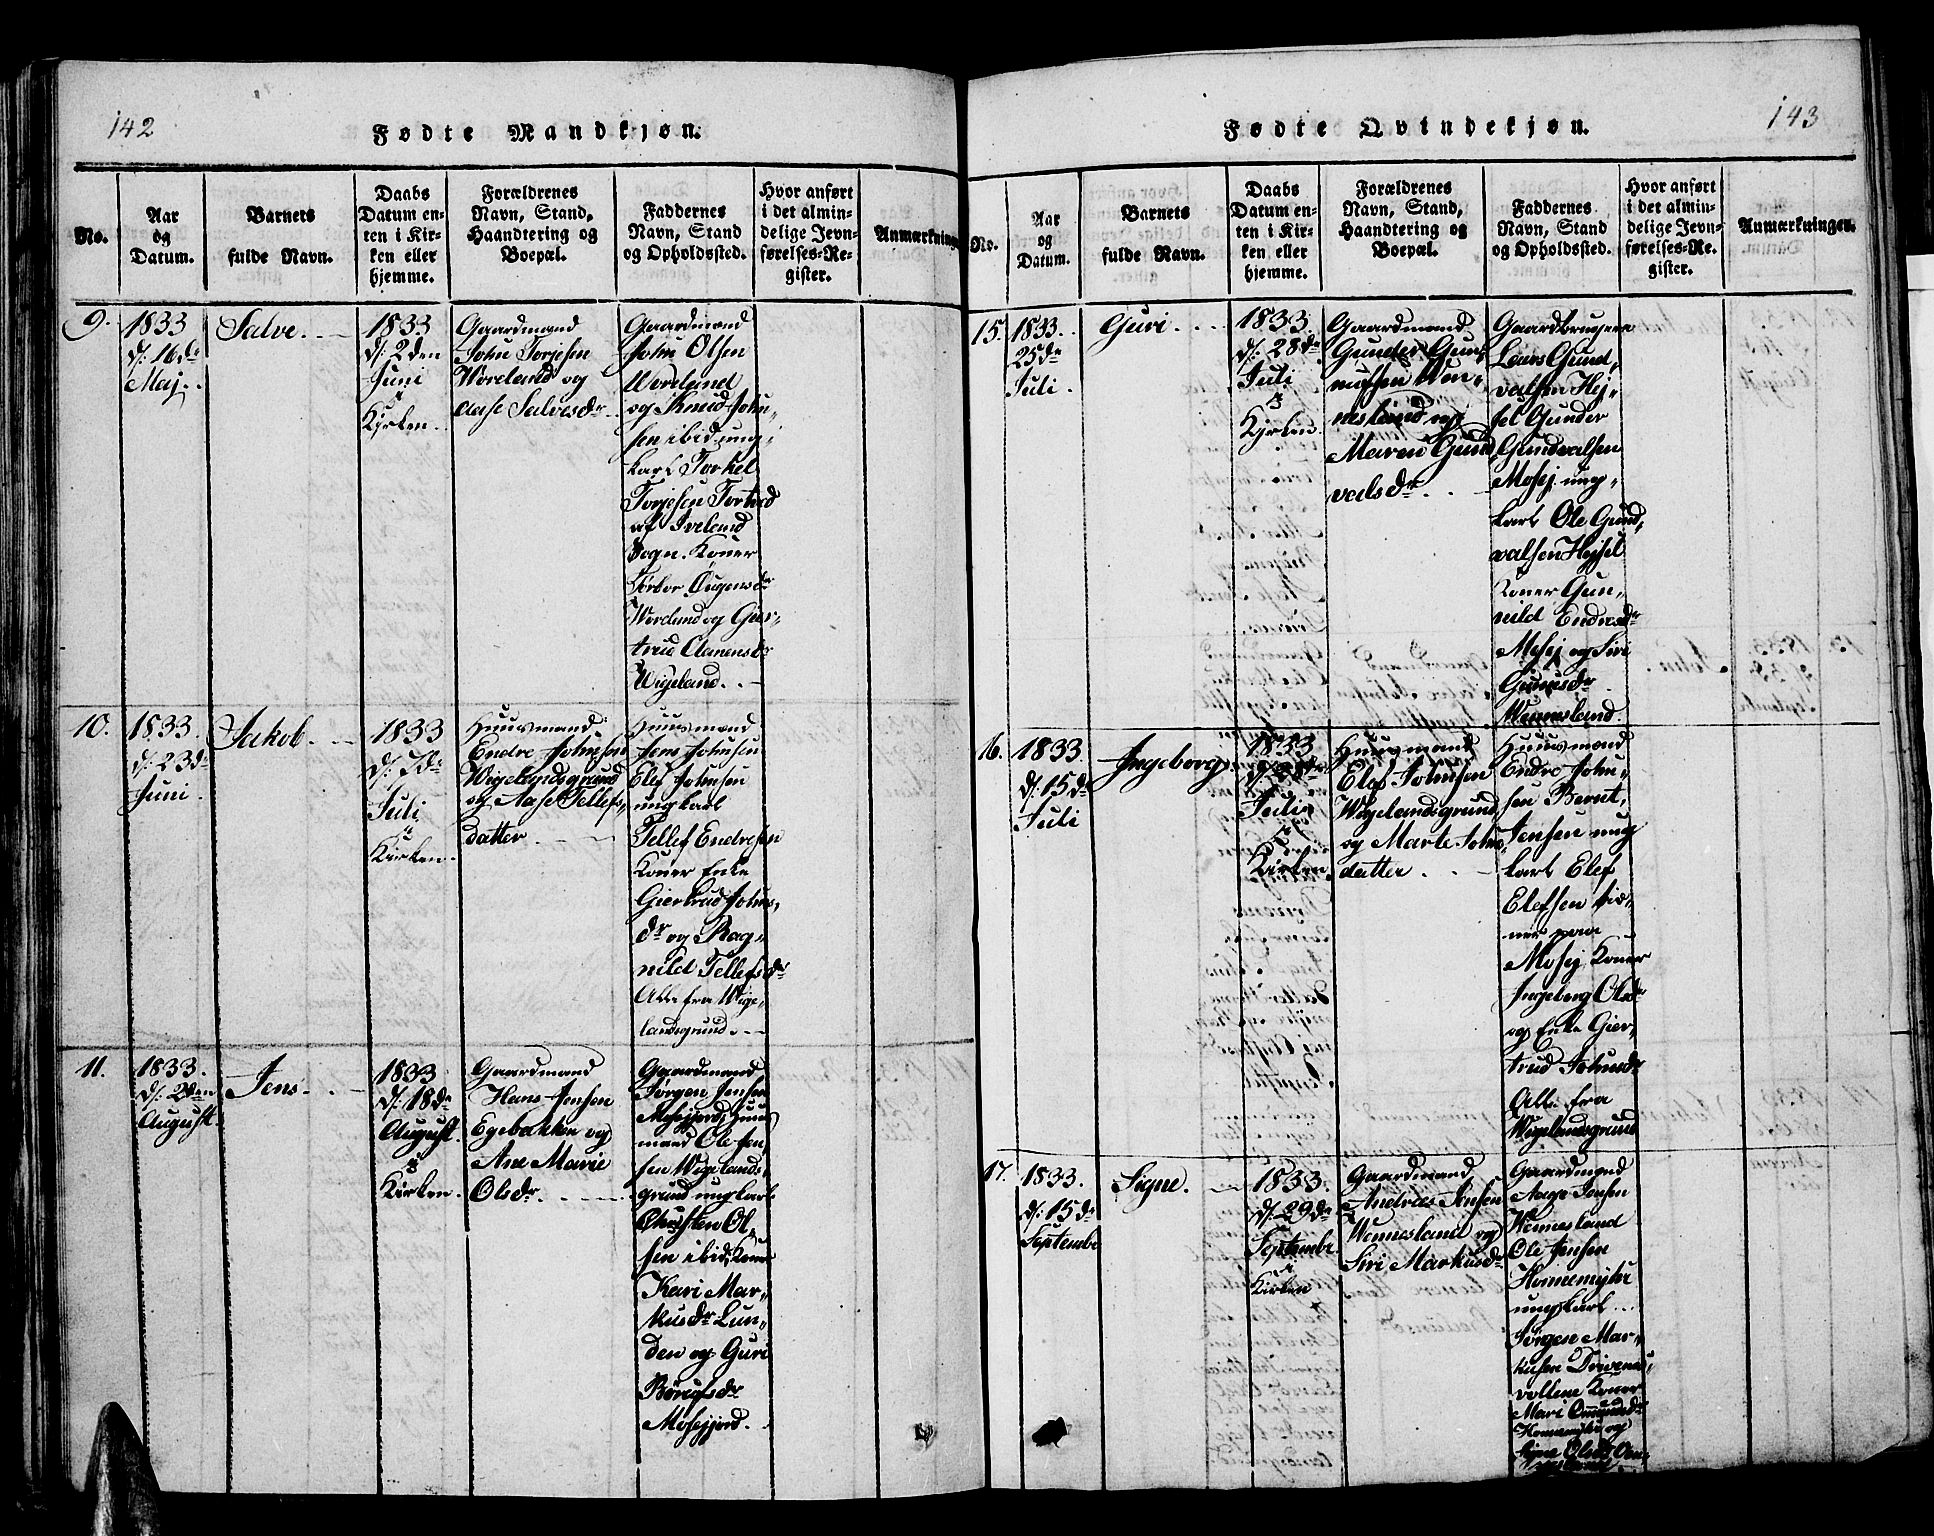 142
Fødte Mandkjøn.
No.
Aar
og
Datum.
Barnets
fulde Navn.
Daabs
Datum en-
ten i Kir-
ken eller
hjemme.
Forældrenes
Navn, Stand,
Haandtering og
Boepæl.
Faddernes
Navn, Stand
og Opholdssted.
Hvor anført
i det almin-
delige Jevn-
førelses-Re-
gister.
Anmærkninger
9.
1833
d: 16de
Maj.
Salve.
1833
d: 2den
Juni
Kirken.
Gaardmand
John Torjesen
Woreland og
Aase Salvesdr
Gaardmand
John Olsen
Woreland
og Knud John-
sen ibid ung-
karl Torkel
Torjesen
af Iveland
Sogn. Koner
Torbor Ougensdr
Woreland og Gier-
trud Clemensdr
Wigeland.
10.
1833.
d: 23de
Juni.
Jakob.
1833
d: 7de
Juli
Kirken.
Huusmand
Endre Johnsen
Wigelandsgrund
og Aase Tellefs-
datter
Huusmand
Jens Johnsen
Elef Johnsen
ungkarl
Tellef Endresen
Koner Enke
Giertrud Johns-
dr og Rag-
nild Tellefsdr
Alle fra Wige-
landsgrund.
11.
1833.
d: 2den
August.
Jens.
1833
d: 18de
August.
Kirken.
Gaardmand
Hans Jensen
Egebakken og
Ane Marie
Olsdr
Gaardmand
Jørgen Jensen
Mosejord, Huus-
mand Ole Jen-
sen Wigelands-
grund ungkarl
Christen Ol-
sen ibid. Koner
Kari Mar-
kusdr Lun-
den og Guri
Børufsdr
Mosejord.
143
Fødte Qvindekjøn.
No.
Aar
og
Datum.
Barnets
fulde Navn.
Daabs
Datum en-
ten i Kir-
ken eller
hjemme.
Forældrenes
Navn, Stand,
Haandtering og
Boepæl.
Faddernes
Navn, Stand
og Opholdssted.
Hvor anført
i det almin-
delige Jevn-
førelses-Re-
gister.
Anmærkninger.
15.
1833.
25de
Juli.
Guri
1833.
d: 28de
Juli
Kirken.
Gaardmand
Gunder Gun-
nufsen Wen-
nesland og
Maren Gund-
valsdr
Gaardbrugere
Lars Gund-
valsen Hej-
sel Gunder
Gundvalsen
Mosej ung-
karl Ole Gund-
valsen Hejsel
Koner Gun-
nild Endresdr
Mosej og Siri
Wennesland.
16.
1833.
d: 15de
Juli
Ingeborg
1833
Juli
Kirken
Huusmand
Elef Johnsen
Wigelandsgrund
og Marte Johns-
datter
Huusmand
Endre John-
sen Bernt
Jensen ung
karl Elef
Elefsen tie-
ner paa
Mosej, Koner
Ingeborg Olsdr
og Enke Gier-
trud Johnsdr
Alle fra
Wigelandsgrund
17.
1833.
d: 15de
Septembr
Signe.
1833.
d: 29de
Septembr.
Kirken
Gaardmand
Andreas Jensen
Wennesland og
Siri Markusdr
Gaardmand
Aage Jensen
Wennesland
Ole Jensen
Homemyhr
ungkarl
Jørgen Mar-
kusen Drivenes-
vollene Koner
Mari Omundsdr
Homemyhr og
Signe Olsdr Wen-
nesland